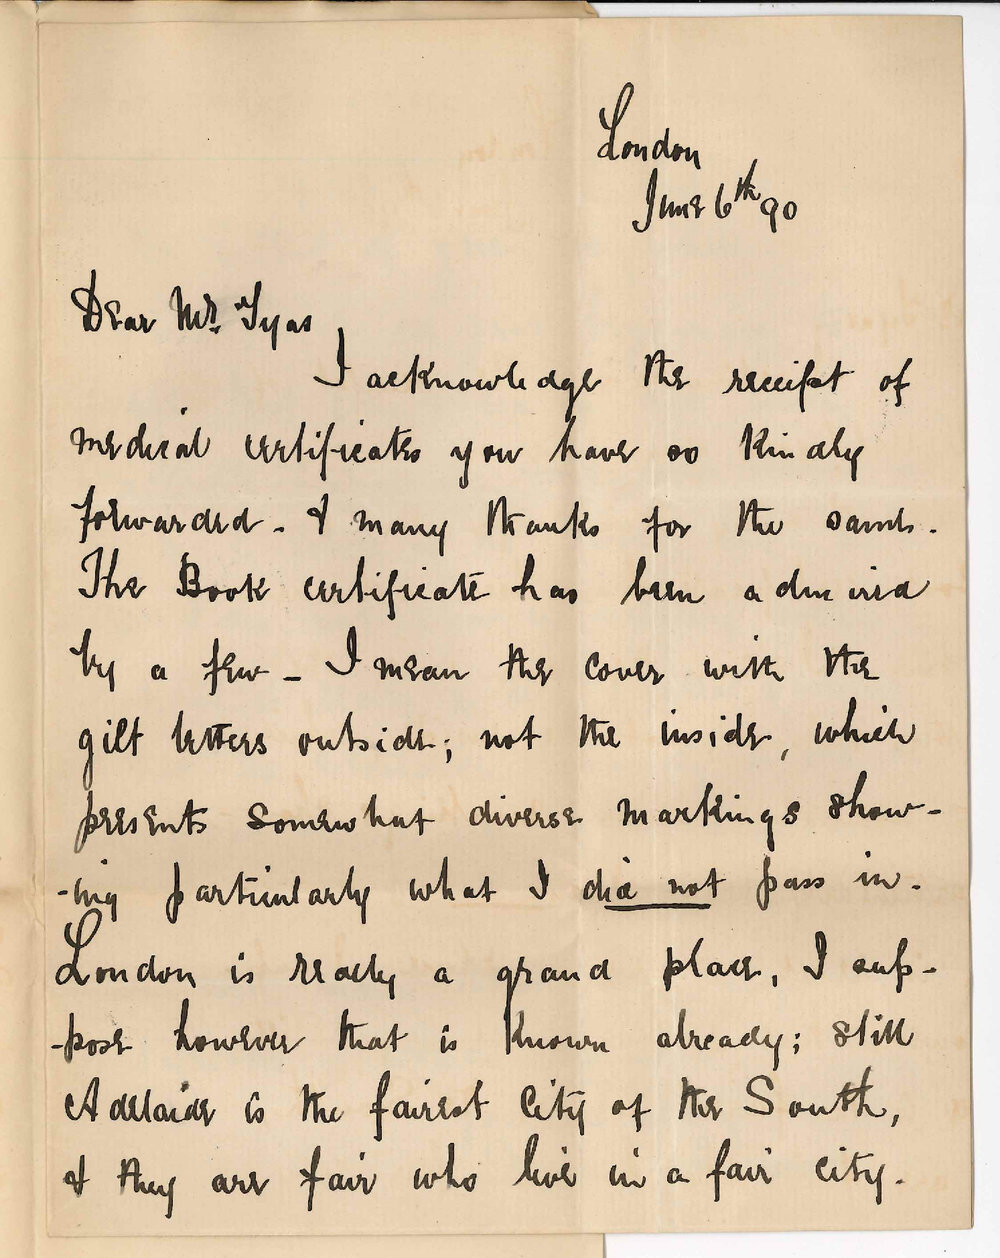 London
June 6th 90
Dear Mr. Tyas
I acknowledge the receipt of
medical certificates you have so kindly
forwarded - & many thanks for the same.
The Book certificate has been admired
by a few - I mean the cover with the
gilt letters outside; not the inside, which
presents somewhat diverse markings show-
-ing particularly what I did not pass in.
London is really a grand place, I sup-
-pose however that is known already; still
Adelaide is the fairest City of the South,
& they are fair who live in a fair city.